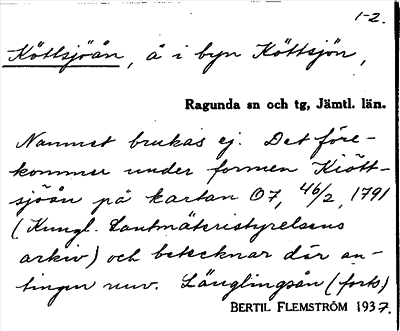 1-2.
Köttsjöån, å i byn Köttsjön,
Ragunda sn och tg, Jämtl. län.
Namnet brukas ej. Det före-
kommer under formen Kiött-
sjöån på kartan O7, 46/2, 1791
(Kungl. Lantmäteristyrelsens
arkiv) och betecknar där an-
tingen nuv. Länglingsån (forts)
BERTIL FLEMSTRÖM 1937.